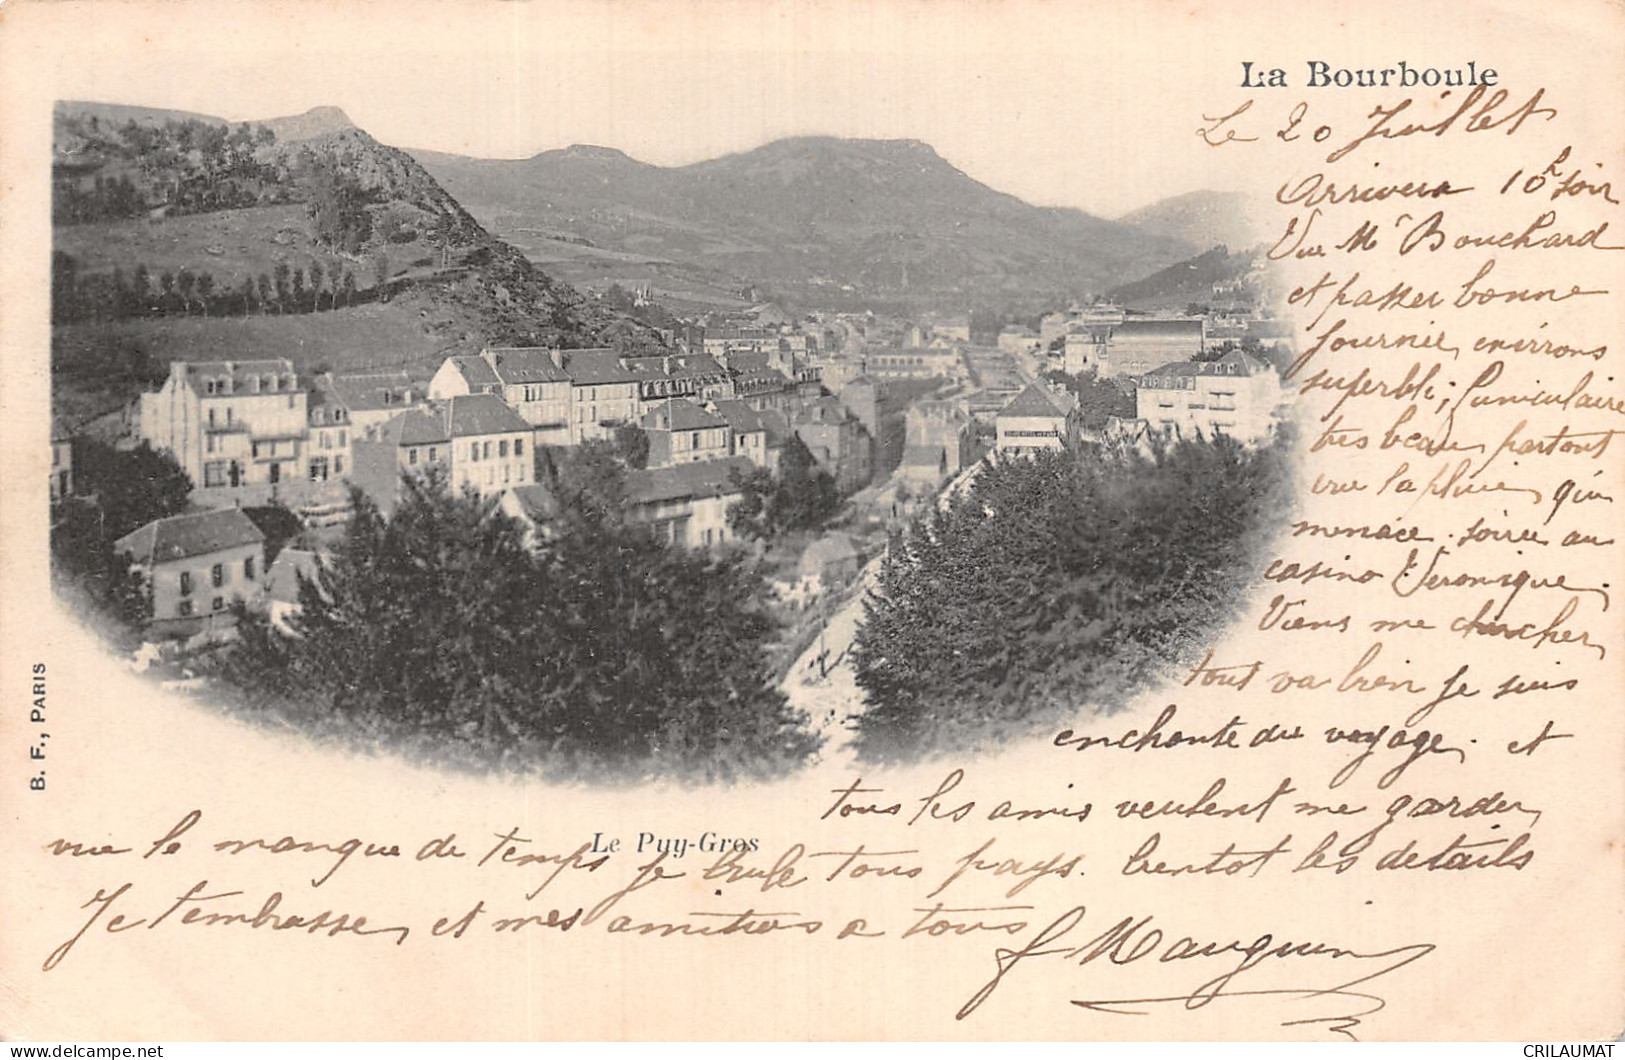 La Bourboule
Le 20 Juillet
Arrivera 10h soir
Vue Mr Bouchard
et passer bonne
journée, environs
superbe; funiculaire
tres beau, partout
vue la pluie, qui
menace. soiree au
casino Veronique.
Viens me chercher,
tout va bien Je suis
enchante du voyage. et
tous les amis veulent me garder,
vue le manque de temps je brule tous pays. bientot les details
Le Puy-Gros
Je t'embrasse, et mes amitios a tous
J Mauguin
B. F., PARIS
CRILAUMAT